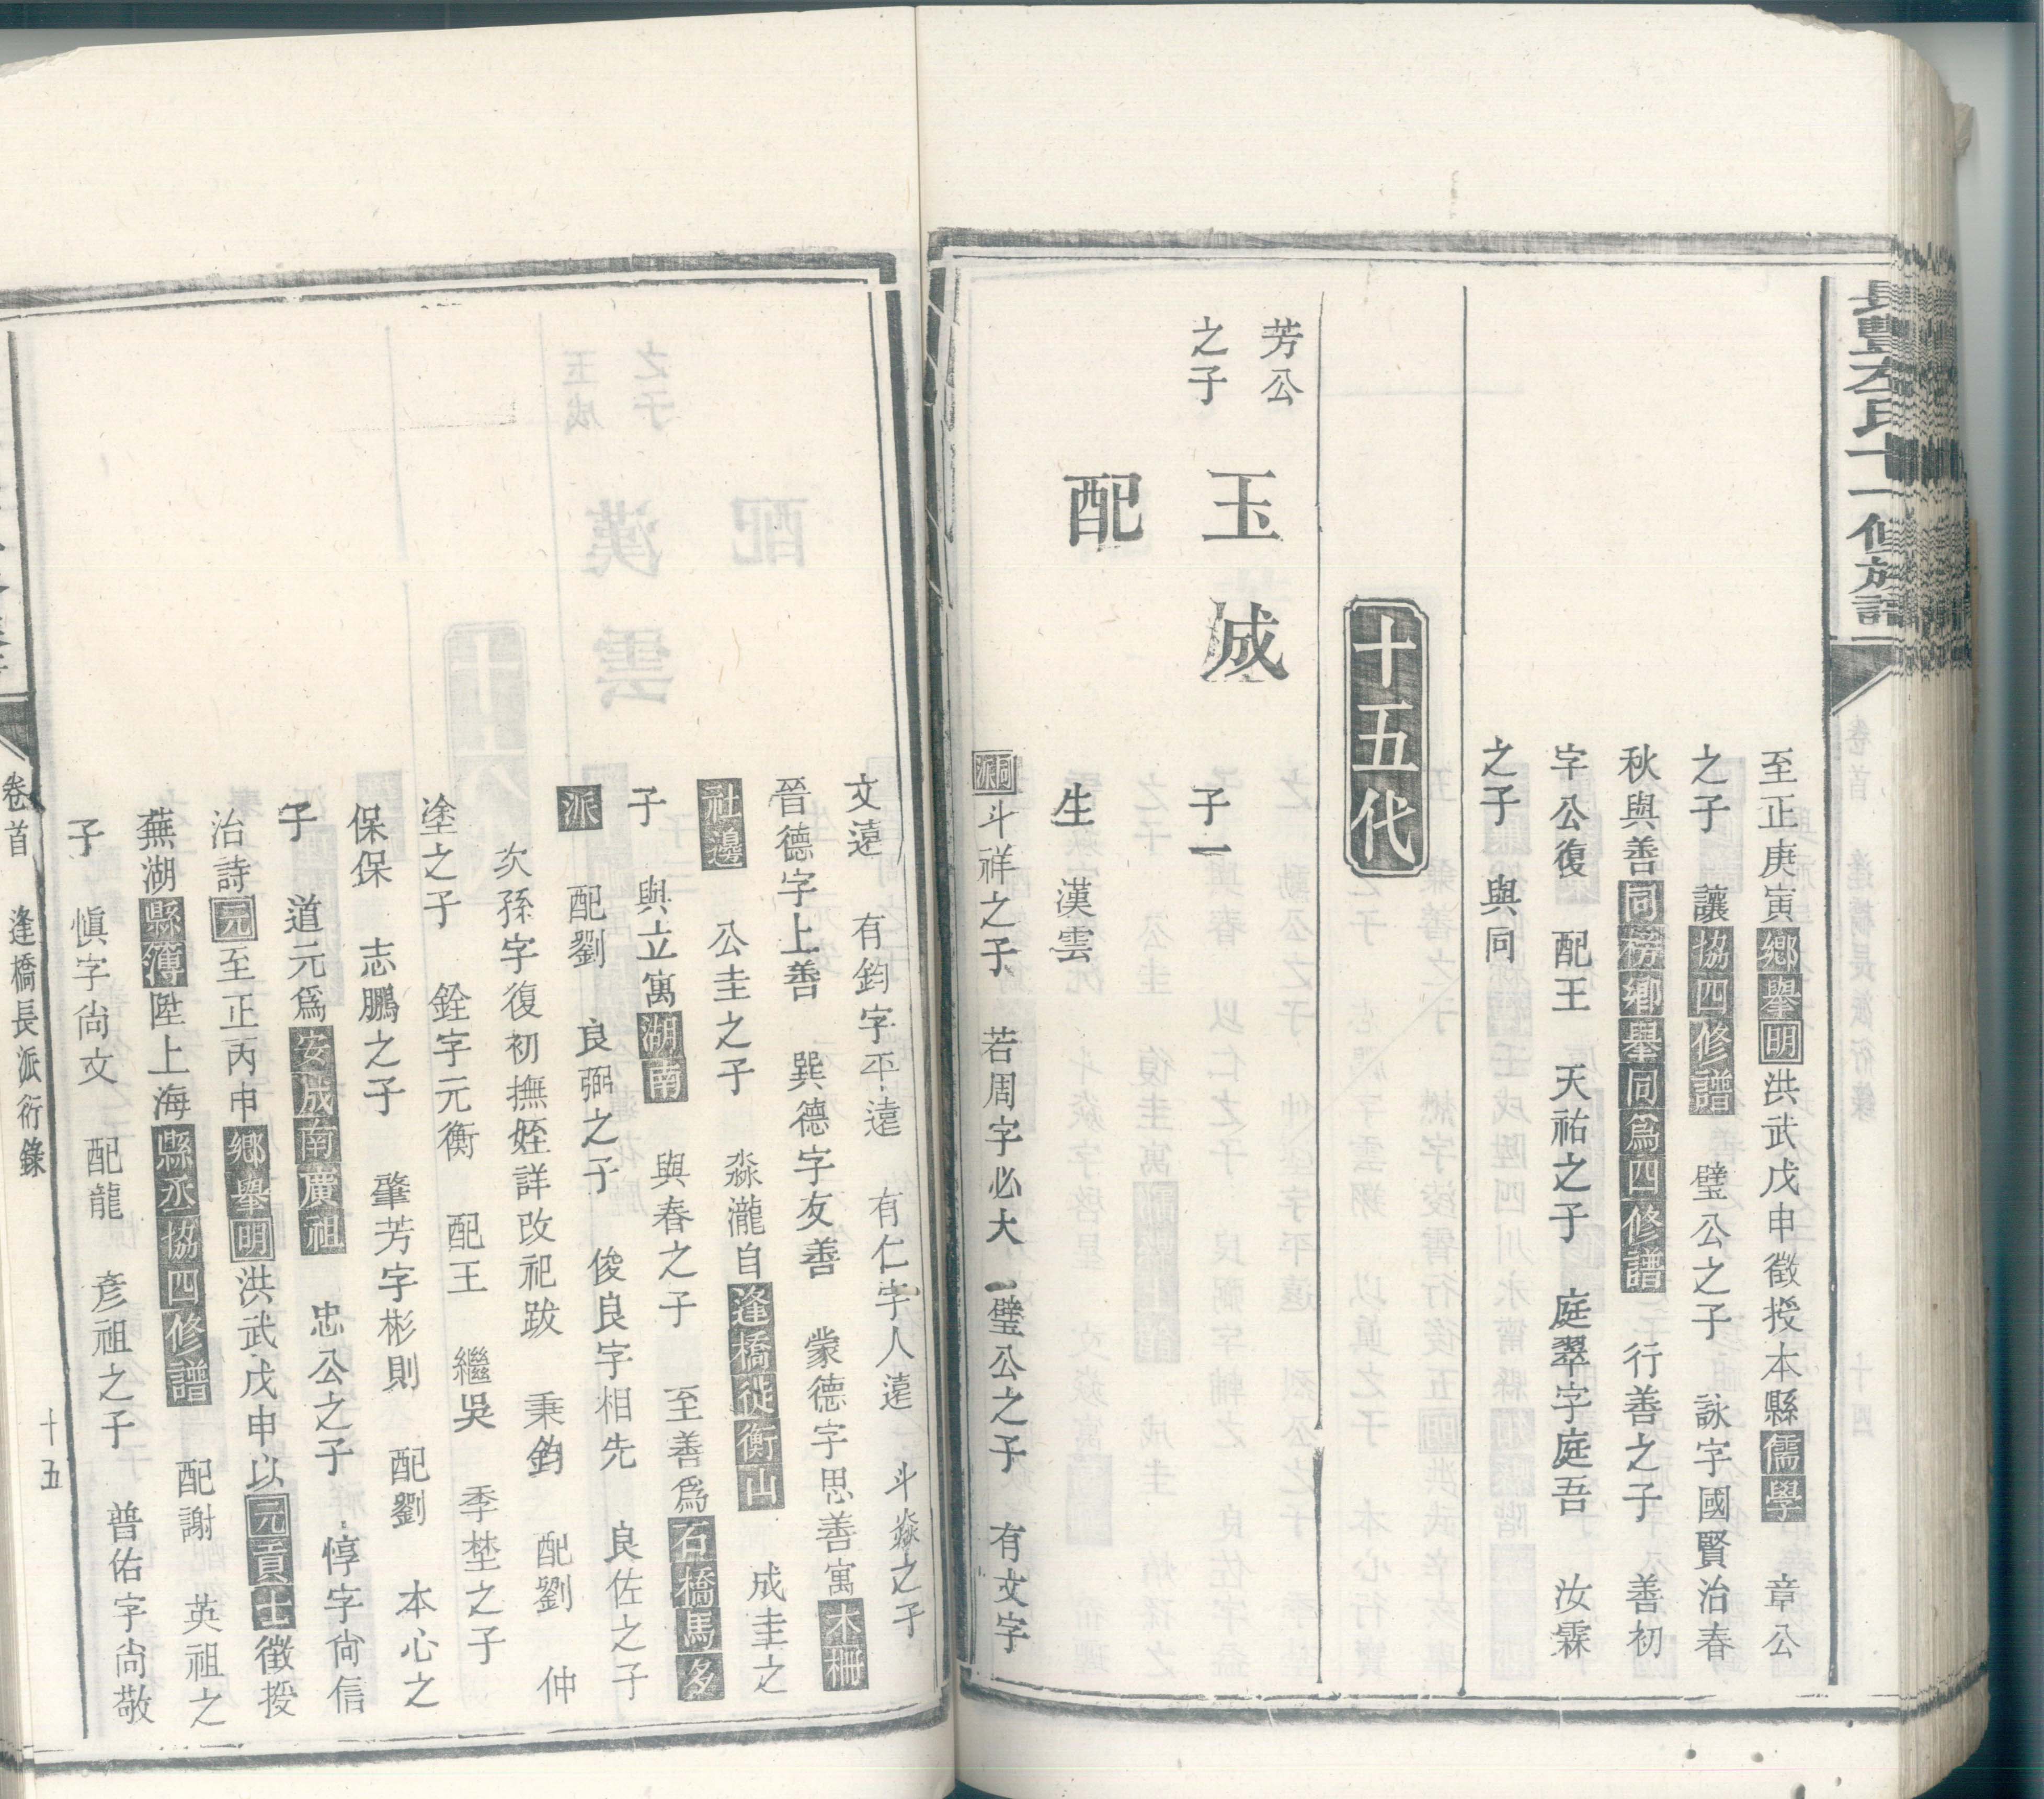 長豐左氏十一修族譜
至正庚寅鄉舉明洪武戊申徵授本縣儒學 章公
之子 讓協四修譜 璧公之子 詠字國賢治春
秋與善同榜鄉舉同為四修譜 行善之子 善初
字公復 配王 天祐之子 庭翠字庭吾 汝霖
之子 與同
十五代
芳公
之子
玉成
子一
配
生 漢雲
同派斗祥之子 若周字必大 璧公之子 有文字
文遠 有鈞字平遠 有仁字人遠 斗焱之子
晉德字上善 巽德字友善 蒙德字思善寓木柵
社邊 公圭之子 淼瀧自逢橋徙衡山 成圭之
子 與立寓湖南 與春之子 至善爲石橋馬多
派 配劉 良弼之子 俊良字相先 良佐之子
次孫字復初撫姪詳改祀跋 秉鈞 配劉 仲
塗之子 銓字元衡 配王 繼吳 季埜之子
保保 志鵬之子 肇芳字彬則 配劉 本心之
子 道元爲安成南廣祖 忠公之子 惇字尚信
治詩元至正丙申鄉舉明洪武戊申以元貢士徵授
蕪湖縣簿陞上海縣丞協四修譜 配謝 英祖之
子 愼字尚文 配龍 彥祖之子 普佑字尚敬
卷首 逢橋長派衍錄 十五